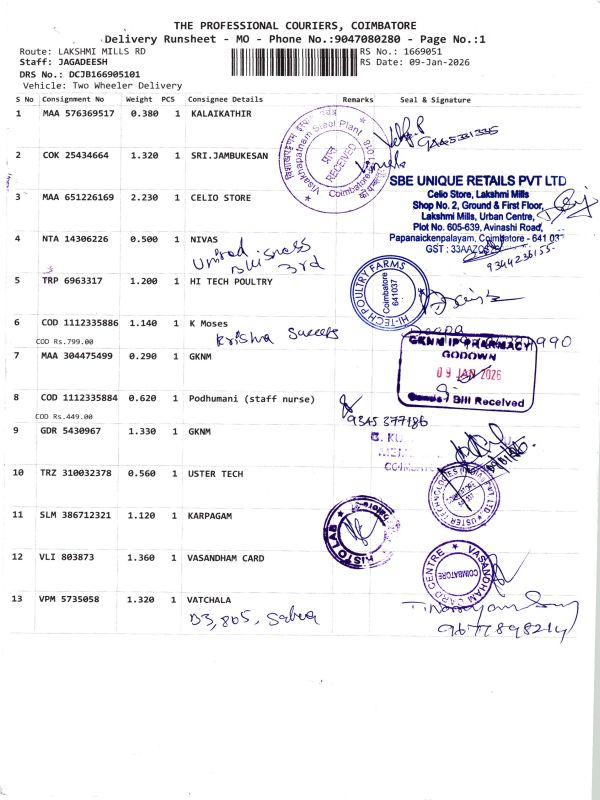 THE PROFESSIONAL COURIERS, COIMBATORE
Delivery Runsheet - MO - Phone No.:9047080280 - Page No.:1
Route: LAKSHMI MILLS RD
RS No.: 1669051
Staff: JAGADEESH
RS Date: 09-Jan-2026
DRS No.: DCJB166905101
Vehicle: Two Wheeler Delivery
S No Consignment No Weight PCS Consignee Details Remarks Seal & Signature
1 MAA 576369517 0.380 1 KALAIKATHIR
Visakhapatnam Steel Plant
RECEIVED
Coimbatore
2 COK 25434664 1.320 1 SRI.JAMBUKESAN
SBE UNIQUE RETAILS PVT LTD
Celio Store, Lakshmi Mills
Shop No. 2, Ground & First Floor,
Lakshmi Mills, Urban Centre,
Plot No. 605-639, Avinashi Road,
Papanaickenpalayam, Coimbatore - 641 03
GST : 33AAZCS
3 MAA 651226169 2.230 1 CELIO STORE
4 NTA 14306226 0.500 1 NIVAS
United
3rd
9344236155
5 TRP 6963317 1.200 1 HI TECH POULTRY
HI-TECH POULTRY FARMS
Coimbatore
641037
6 COD 1112335886 1.140 1 K Moses
COD Rs.799.00
Krisha Success
Deepa
7 MAA 304475499 0.290 1 GKNM
GKNM IP PHARMACY
GODOWN
09 JAN 2026
Goods / Bill Received
8 COD 1112335884 0.620 1 Podhumani (staff nurse)
COD Rs.449.00
9345377186
9 GDR 5430967 1.330 1 GKNM
10 TRZ 310032378 0.560 1 USTER TECH
USTER TECHNOLOGIES
11 SLM 386712321 1.120 1 KARPAGAM
HISTO LAB
12 VLI 803873 1.360 1 VASANDHAM CARD
VASANDHAM CARD CENTRE
COIMBATORE
13 VPM 5735058 1.320 1 VATCHALA
D3, 805, Sabea
9677898214